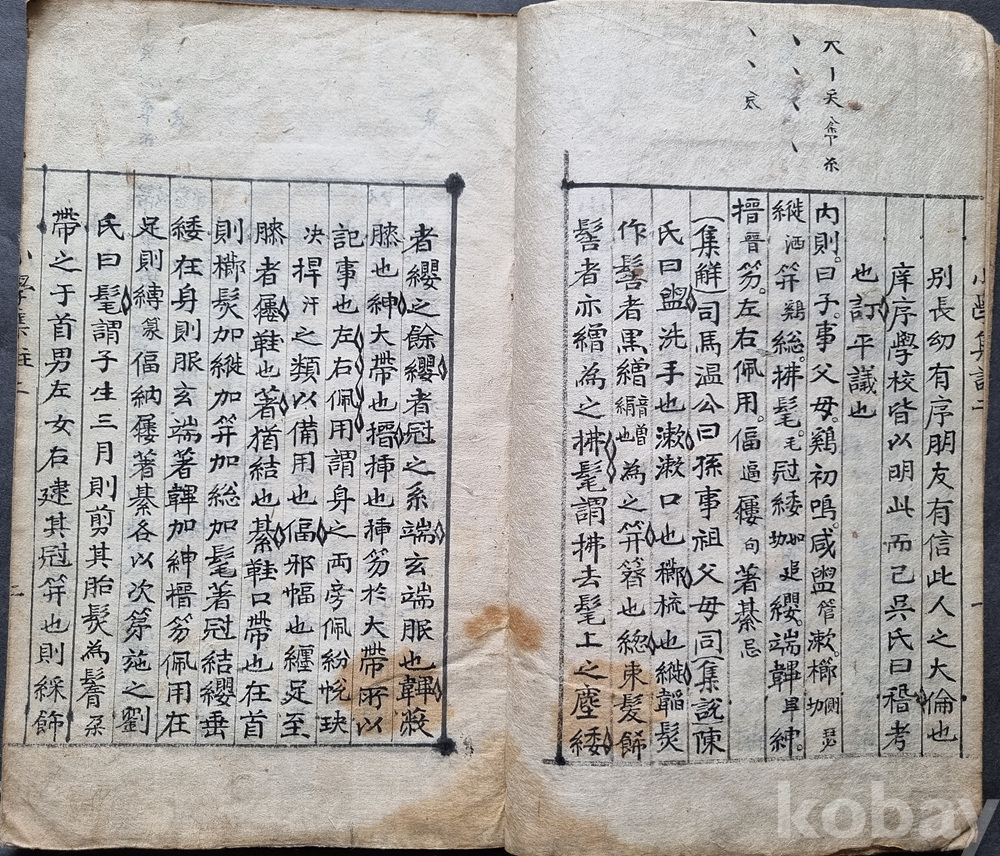 小學集註二 一
别長幼有序朋友有信此人之大倫也
庠序學校皆以明此而已吳氏曰稽考
也訂平議也
内則。曰子。事父母。鷄初鳴。咸盥管漱。櫛側瑟切
縰洒笄鷄總。拂髦。毛冠緌如追切纓。端韠畢紳。
搢晋笏。左右佩用。偪逼屨句著綦忌
(集解)司馬温公曰孫事祖父母同(集說陳
氏曰盥洗手也漱漱口也櫛梳也縰韜髮
作髻者黒繒為之笄簪也總束髮餙
髻者亦繒為之拂髦謂拂去髦上之塵緌
者纓之餘纓者冠之系端玄端服也韠蔽
膝也紳大帶也搢揷也揷笏於大帶所以
記事也左右佩用謂身之両旁佩紛帨玦
决捍汗之類以備用也偪邪幅也纏足至
膝者屨鞋也著猶結也綦鞋口帶也在首
則櫛髮加縰加笄加総加髦著冠結纓垂
緌在身則服玄端著韠加紳搢笏佩用在
足則縛篆偪納屨著綦各以次第施之劉
氏曰髦謂子生三月則剪其胎髮為鬌朶
帶之于首男左女右逮其冠笄也則綵餙
小學集註二 二